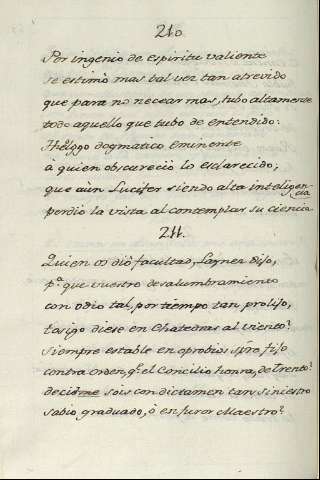 210
Por ingenio de espiritu valiente
se estimò mas tal vez tan atrevido
que para no necear mas, tubo altamente
todo aquello que tubo de entendido:
Theologo dogmatico eminente
à quien obscureciò lo esclarecido;
que aùn Lucifer siendo alta inteligencia
perdio la vista al contemplar su ciencia.
211.
Quien os diò facultad, Laynez dijo,
pª que vuestro desalumbramiento
con odio tal, por tiempo tan prolijo,
tosigo diese en Chatedras al viento?
siempre estable en oprobios spre fijo
contra orden, qe el Concilio honra, de Trento?
decidme sois con dictamen tan siniestro
sabio graduado, ò en furor Maestro?